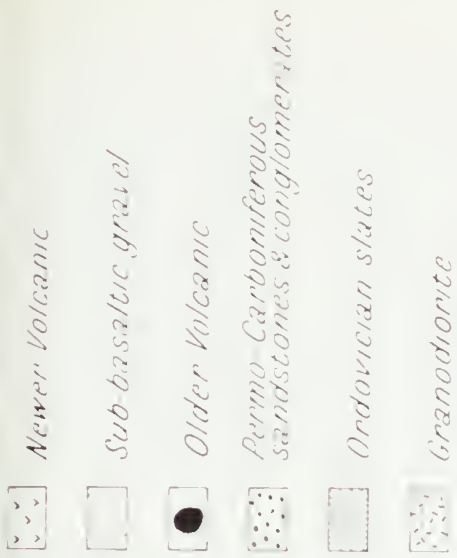 Newer Volcanic
Sub-basaltic gravel
Older Volcanic
Permo-Carboniferous
sandstones & conglomerites
Ordovician slates
Granodiorite